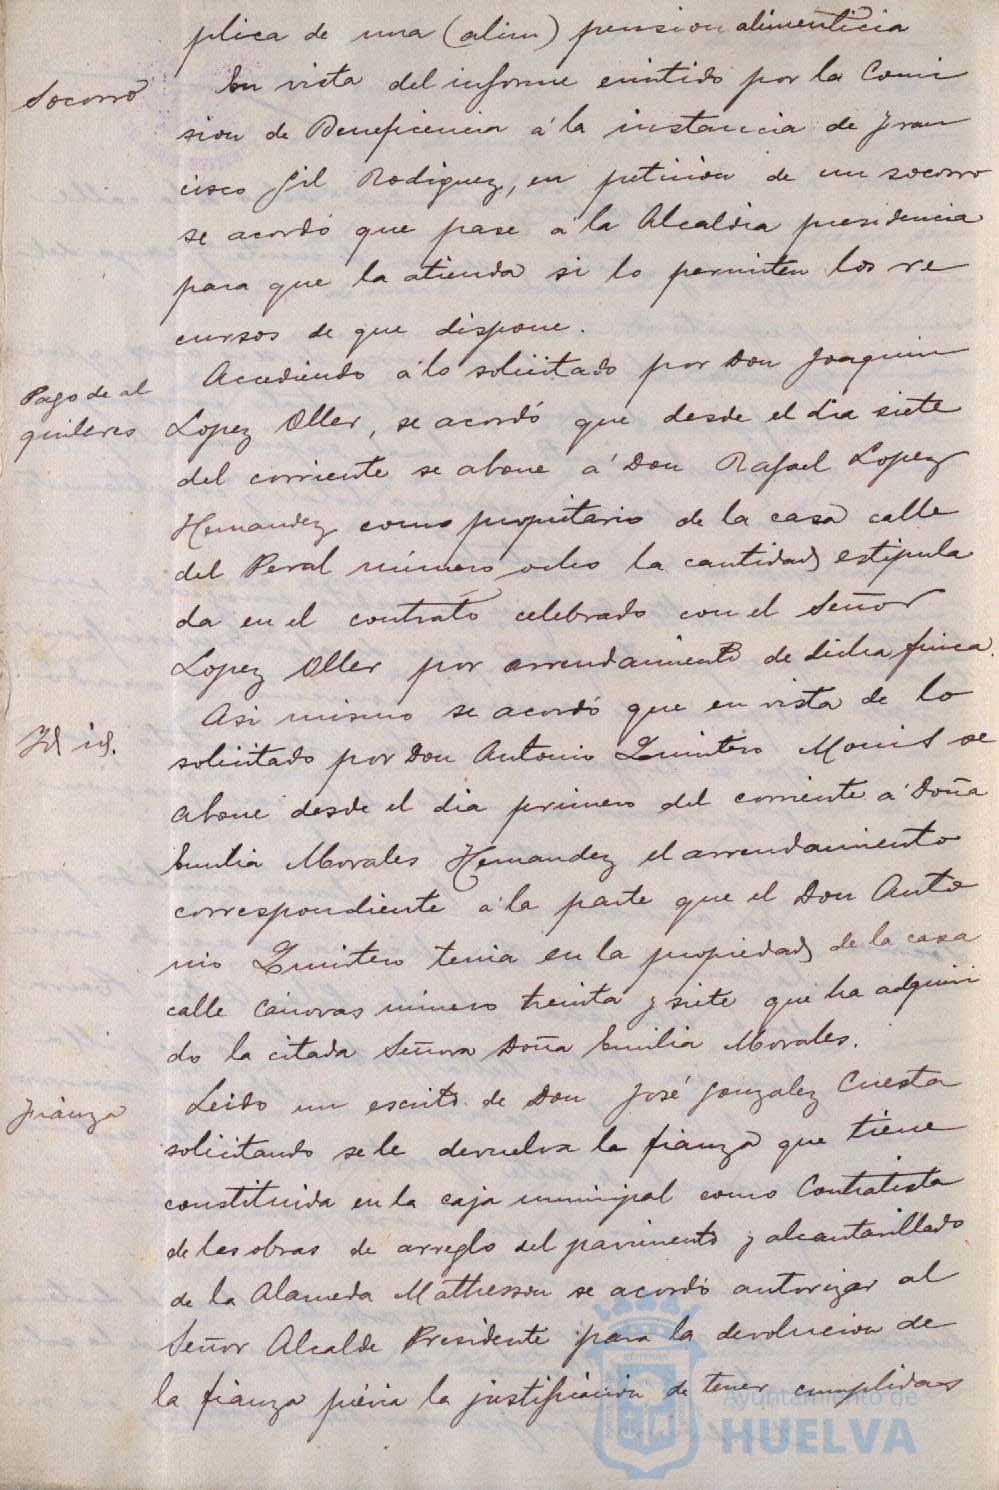 plica de una (alim) pension alimenticia
Socorro
En vista del informe emitido por la Comi
sion de Beneficencia á la instancia de Fran
cisco Gil Rodriguez, en peticion de un socorro
se acordó que pase á la Alcaldia presidencia
para que la atienda si lo permiten los re
cursos de que dispone.
Pago de al
quileres
Accediendo á lo solicitado por Don Joaquin
Lopez Oller, se acordó que desde el dia siete
del corriente se abone á Don Rafael Lopez
Hernandez como propietario de la casa calle
del Peral número ocho la cantidad estipula
da en el contrato celebrado con el Señor
Lopez Oller por arrendamiento de dicha finca.
Id id.
Asi mismo se acordó que en vista de lo
solicitado por Don Antonio Quintero Monis se
abone desde el dia primero del corriente á Doña
Emilia Morales Hernandez el arrendamiento
correspondiente á la parte que el Don Anto
nio Quintero tenia en la propiedad de la casa
calle Cánovas número treinta y siete que ha adquiri
do la citada Señora Doña Emilia Morales.
Fianza
Leido un escrito de Don José Gonzalez Cuesta
solicitando se le devuelva la fianza que tiene
constituida en la caja municipal como Contratista
de las obras de arreglo del pavimento y alcantarillado
de la Alameda Mathesson se acordó autorizar al
Señor Alcalde Presidente para la devolucion de
la fianza prévia la justificación de tener cumplidas
Ayuntamiento de
HUELVA